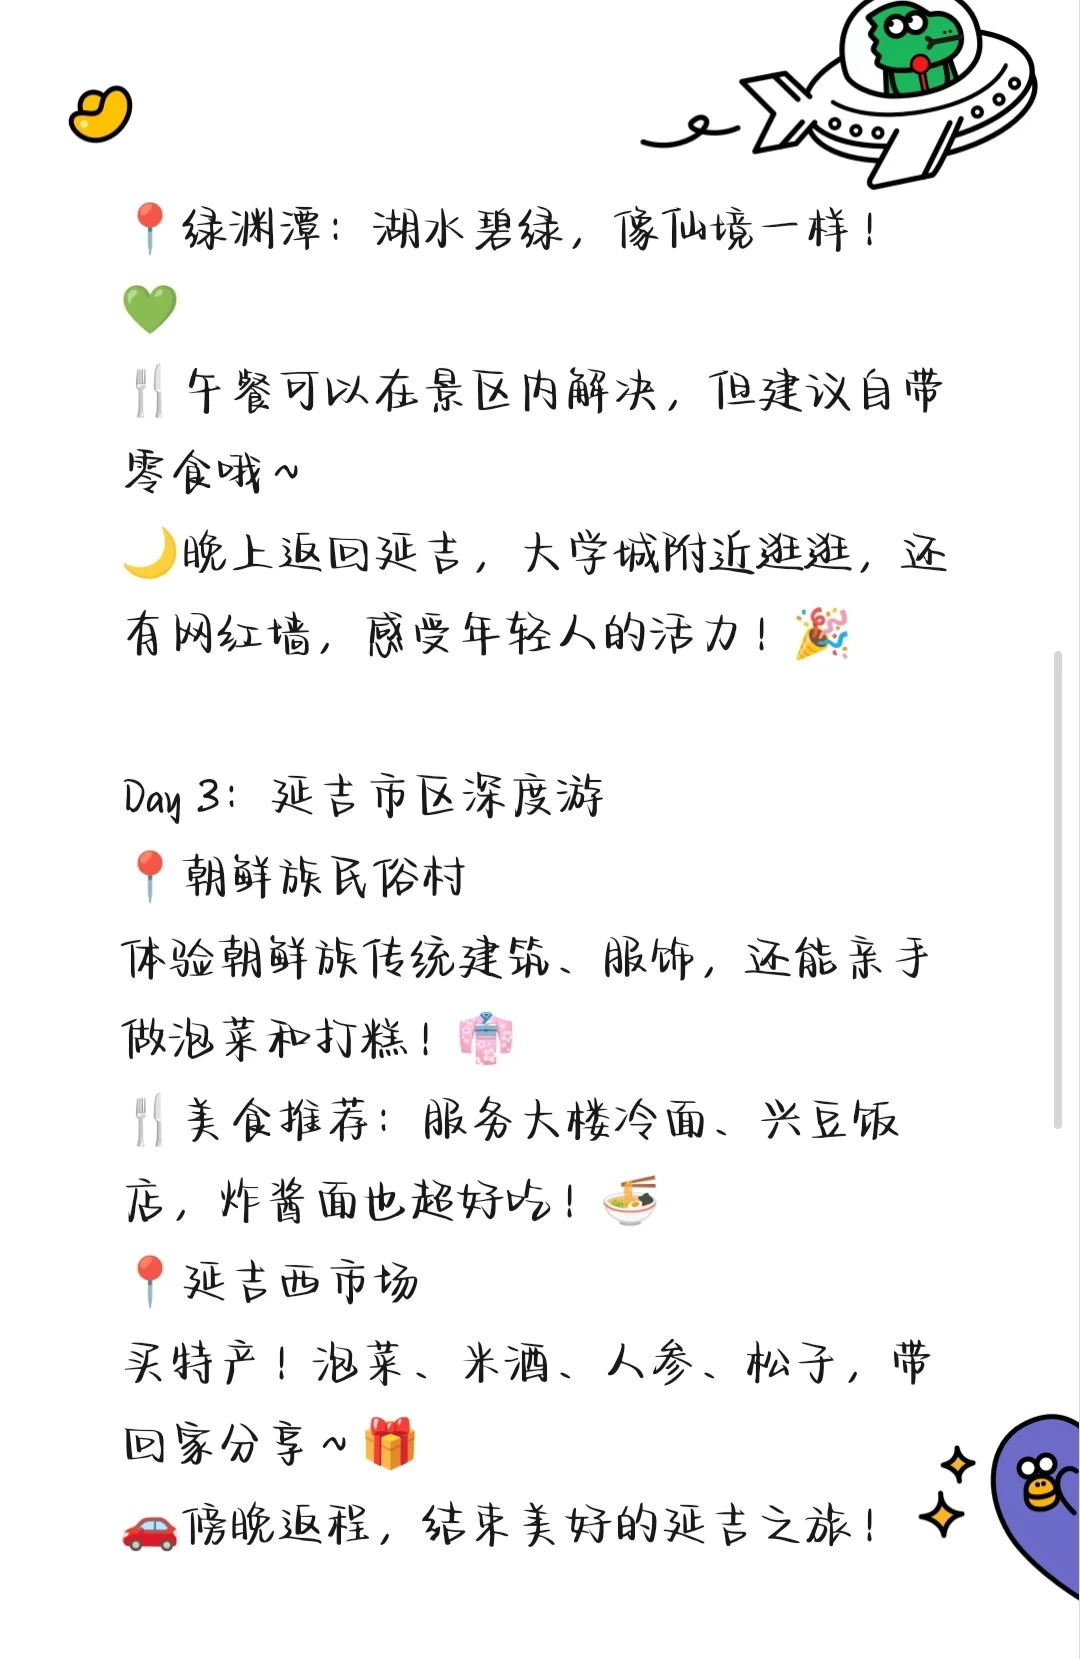 📍绿渊潭：湖水碧绿，像仙境一样！
💚
🍴午餐可以在景区内解决，但建议自带
零食哦~
🌙晚上返回延吉，大学城附近逛逛，还
有网红墙，感受年轻人的活力！🎉
Day 3：延吉市区深度游
📍朝鲜族民俗村
体验朝鲜族传统建筑、服饰，还能亲手
做泡菜和打糕！👘
🍴美食推荐：服务大楼冷面、兴豆饭
店，炸酱面也超好吃！🍜
📍延吉西市场
买特产！泡菜、米酒、人参、松子，带
回家分享~🎁
🚗傍晚返程，结束美好的延吉之旅！